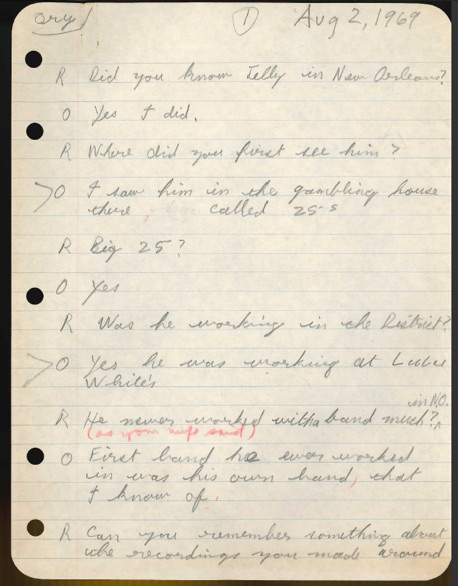 Ory
1
Aug 2, 1969
R Did you know Jelly in New Orleans?
O Yes I did.
R Where did you first see him?
>O I saw him in the gambling house
there, called 25-s
R Big 25?
O Yes
R Was he working in the District?
>O Yes he was working at Lulu
White's
in N.O.
R He never worked with a band much?
(as your wife said)
O First band he ever worked
in was his own band, that
I know of.
R Can you remember something about
the recordings you made around